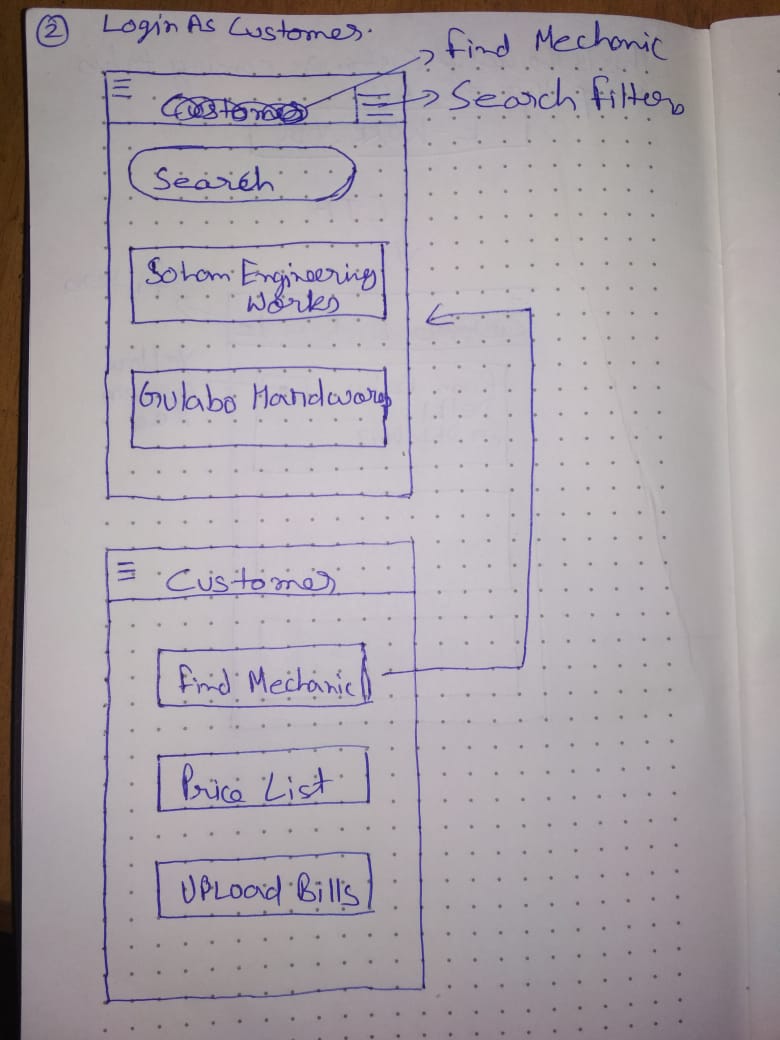 ② Login As Customer.
Find Mechanic
Customer
Search filter
Search
Soham Engineering
Works
Gulabo Hardware
Customer
Find Mechanic
Price List
UPLoad Bills